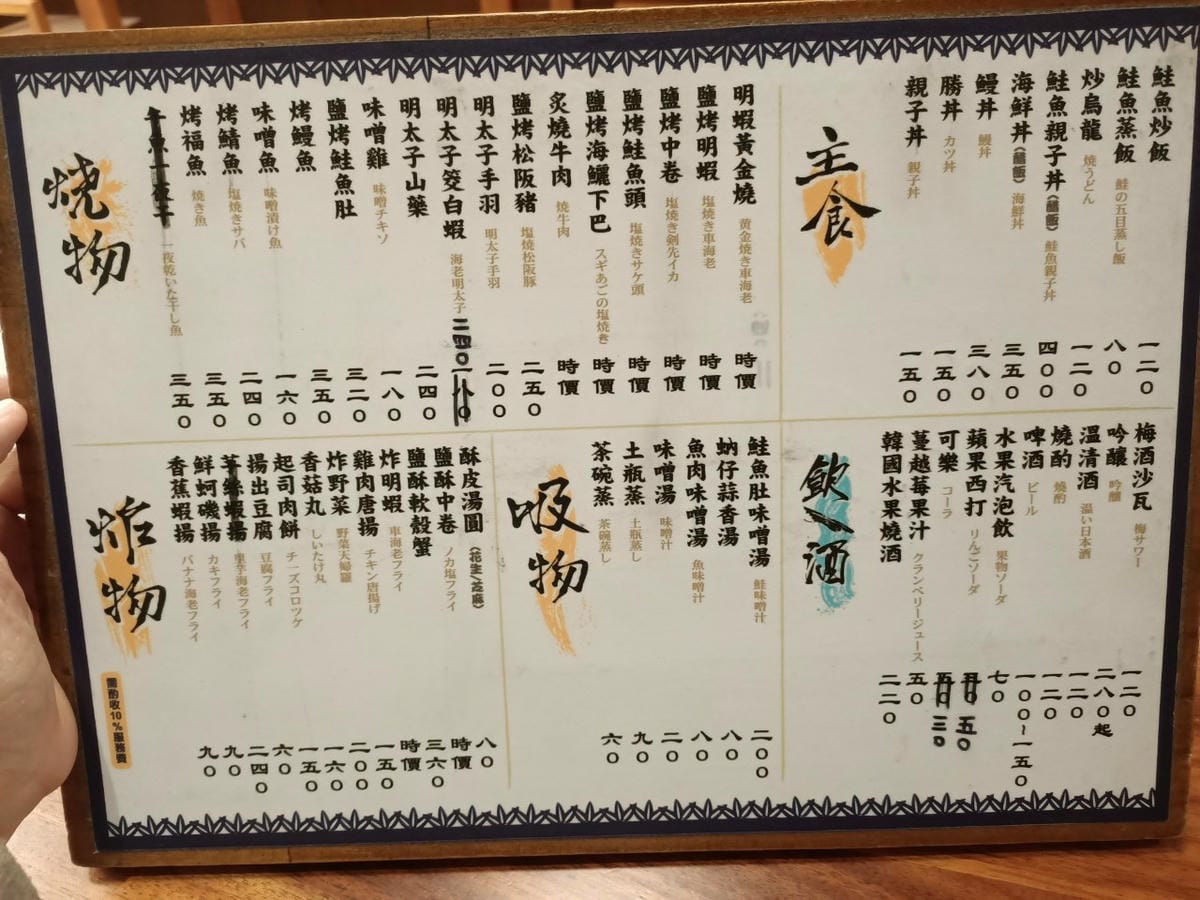 主食
鮭魚炒飯 一二○
鮭魚蒸飯 鮭の五目蒸し飯 八○
炒烏龍 焼うどん 一二○
鮭魚親子丼(醋飯) 鮭魚親子丼 四○○
海鮮丼(醋飯) 海鮮丼 三五○
鰻丼 鰻丼 三八○
勝丼 カツ丼 一五○
親子丼 親子丼 一五○
燒物
明蝦黃金燒 黄金焼き車海老 時價
鹽烤明蝦 塩焼き車海老 時價
鹽烤中卷 塩焼き剣先イカ 時價
鹽烤鮭魚頭 塩焼きサケ頭 時價
鹽烤海鱺下巴 スギあごの塩焼き 時價
炙燒牛肉 焼牛肉 時價
鹽烤松阪豬 塩焼松阪豚 二五○
明太子手羽 明太子手羽 二○○
明太子筊白蝦 海老明太子 二四○ 一八○
明太子山藥 二四○
味噌雞 味噌チキソ 一八○
鹽烤鮭魚肚 三二○
烤鰻魚 三五○
味噌魚 味噌漬け魚 一六○
烤鯖魚 塩焼きサバ 二四○
烤福魚 焼き魚 三五○
午魚一夜干 一夜乾いた干し魚 三五○
飲/酒
梅酒沙瓦 梅サワー 一二○
吟釀 吟醸 二八○起
溫清酒 温い日本酒 一二○
燒酌 焼酌 一二○
啤酒 ビール 一○○~一五○
水果汽泡飲 果物ソーダ 七○
蘋果西打 りんごソーダ 五○
可樂 コーラ 三○
蔓越莓果汁 クランベリージュース 五○
韓國水果燒酒 二二○
吸物
鮭魚肚味噌湯 鮭味噌汁 二○○
蚋仔蒜香湯 八○
魚肉味噌湯 魚味噌汁 八○
味噌湯 味噌汁 二○
土瓶蒸 土瓶蒸し 九○
茶碗蒸 茶碗蒸し 六○
炸物
酥皮湯圓(花生/芝麻) 八○
鹽酥中卷 ノカ塩フライ 時價
鹽酥軟殼蟹 三六○
炸明蝦 車海老フライ 時價
雞肉唐揚 チキン唐揚げ 一五○
炸野菜 野菜天婦羅 二○○
香菇丸 しいたけ丸 一六○
起司肉餅 チーズコロツケ 一五○
揚出豆腐 豆腐フライ 六○
芋絲蝦揚 里芋海老フライ 二四○
鮮蚵磯揚 カキフライ 九○
香蕉蝦揚 バナナ海老フライ 九○
需酌收10%服務費